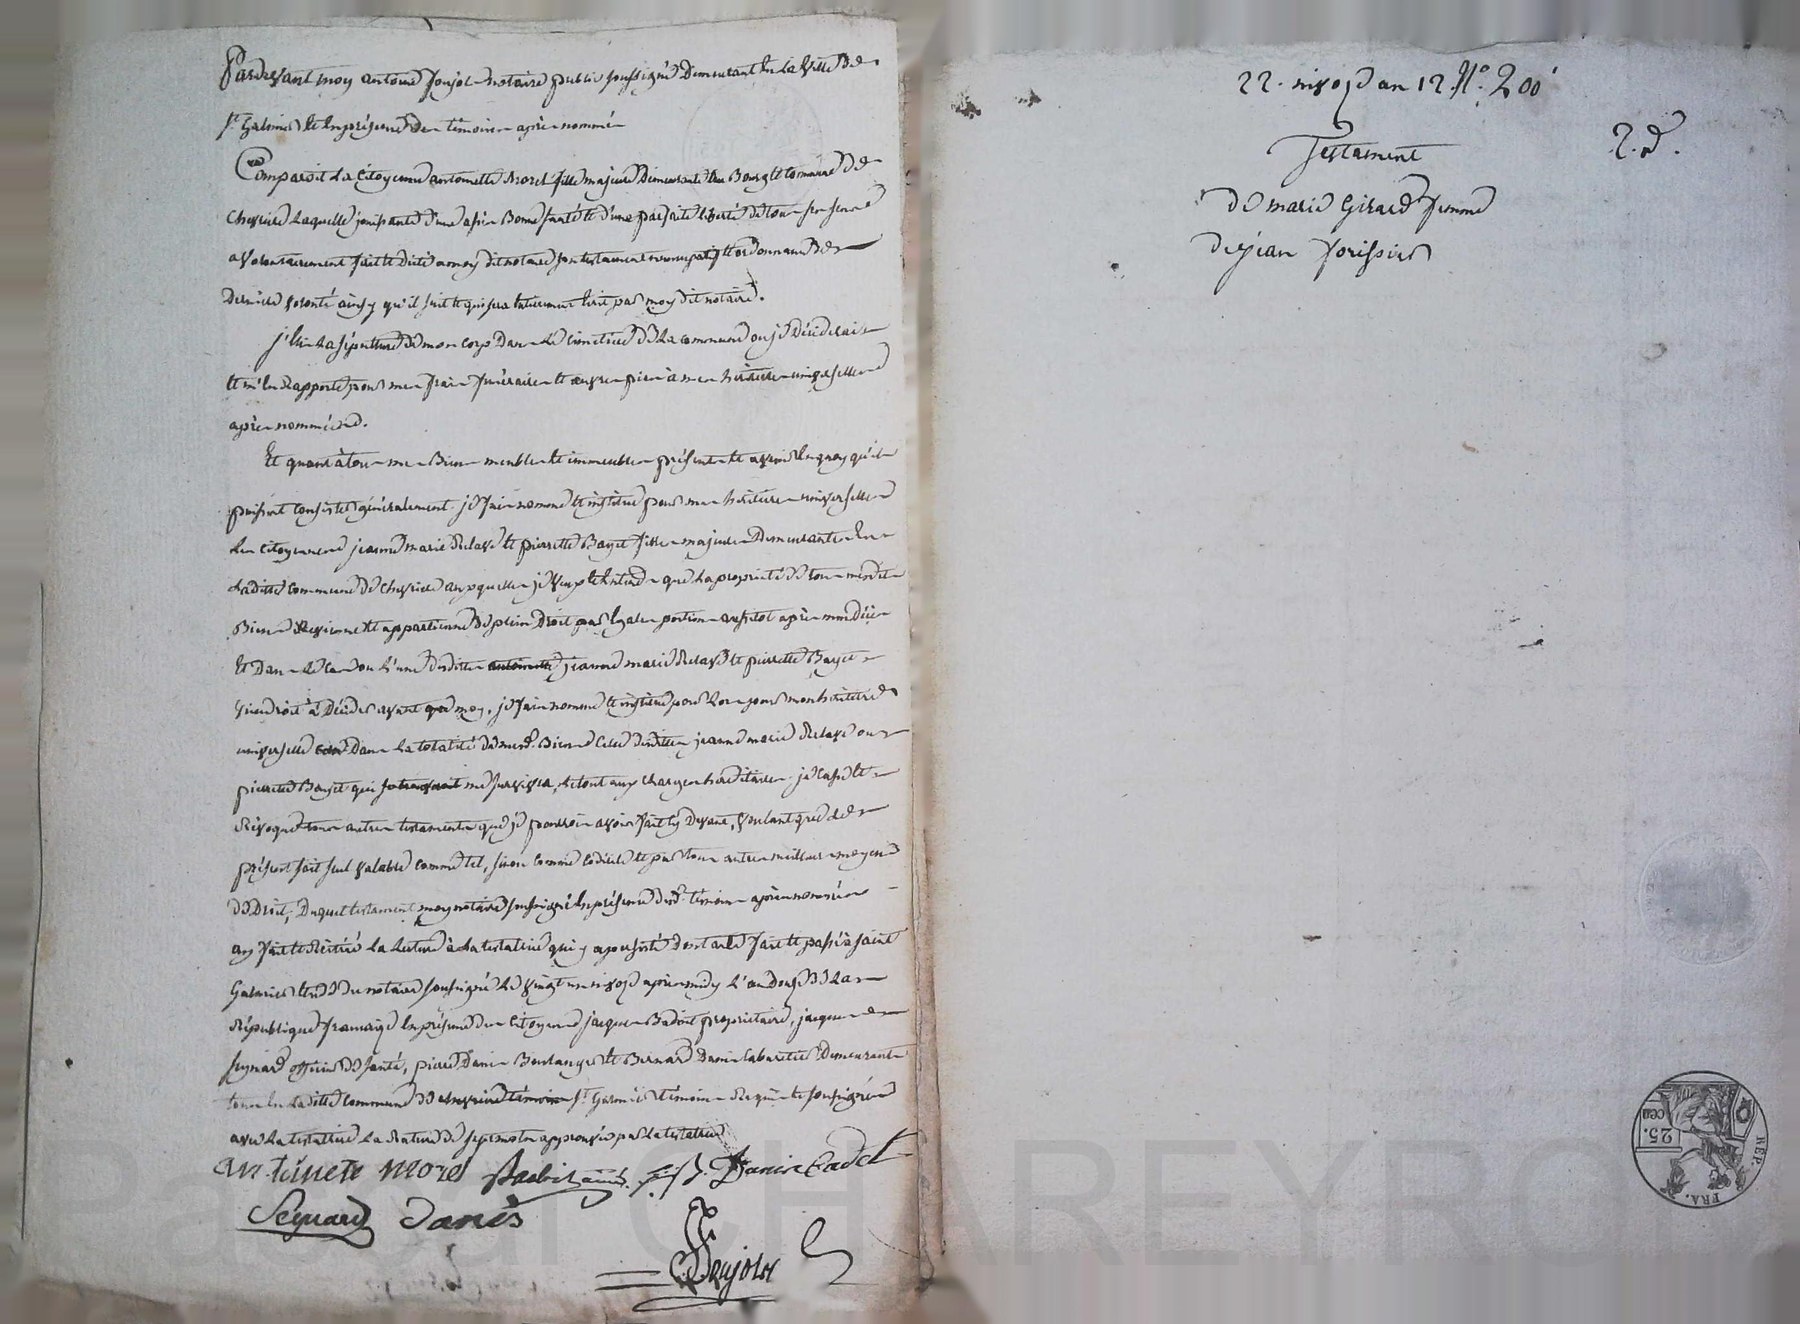 Pardevant moy antoine Poujol notaire public soussigné Demeurant En la Ville De
St Galmier Et En présence De témoins après nommés
Comparoit La Citoyenne antoinette Morel fille majeure Demeurante Au Bourg Et Commune De
Chevriere Laquelle jouissante d'une assés Bonne santé Et d'une parfaite liberté De tous ses sens
a Volontairement fait Et Dicté a moy dit notaire son testament noncupatif Et ordonnance De
Derniere volonté ainsy qu'il suit Et qui sera Entierement Ecrit par moy dit notaire.
j'Elis La sépulture De mon corps Dans Le cimetiere De La commune ou je Décéderai
Et m'En Rapporte pour mes frais funéraires Et œuvres pies à mes héritieres universelles
après nommées.
Et quant à tous mes Biens meubles Et immeubles présents Et avenir En quoy qu'ils
puissent Consister généralement je fais nomme Et institue pour mes héritieres universelles
Les Citoyennes jeanne marie Relave Et pierrette Bayet filles majeures Demeurantes En
Laditte commune De Chevriere auxquelles je Veux Et Entends que La propriété De tous mesdits
Biens Revienne Et appartienne De plein Droit par Egales portions aussitot après mon Décès
Et Dans Le Cas ou L'une desdittes antoinette jeanne marie Relave Et pierrette Bayet
Viendroit à Décéder avant que moy, je fais nomme Et institue pour Lors pour mon héritiere
universelle Dans La totalité De mesd. Biens Celle desdittes jeanne marie Relave ou
pierrette Bayet qui me survivra, Et tout aux charges héréditaires. je Casse Et
Révoque tous autres testaments que je pourrois avoir fait Cy Devant, Voulant que Le
présent soit seul valable comme tel, sinon comme Codicile Et par tous autres meilleurs moyens
De Droit, Duquel testament moy notaire soussigné En présence desd. témoins après nommés
ay fait Et Réitéré La Lecture à La testatrice qui y a persisté Dont acte fait Et passé à saint
Galmier Etude Du notaire soussigné Le Vingt un nivose après midy L'an Douze De La
République française En présence Des Citoyens jacques Badoit propriétaire, jacques
seynard officier De santé, pierre Danis Boulanger Et Bernard Danis Cabaretier Demeurants
tous En Laditte Commune De Chevriere témoins St Galmier témoins Requis Et soussignés
avec La testatrice La Rature De sept mots approuvée par La testatrice
antoinete morel Badoit ainé. Danis Cadet
Seynard Danis
Poujol
22. nivose an 12. No. 200
Testament
2. d.
De marie Girard femme
De jean forissier
REP. FRA.
25.
cen
Pascal CHAREYRON